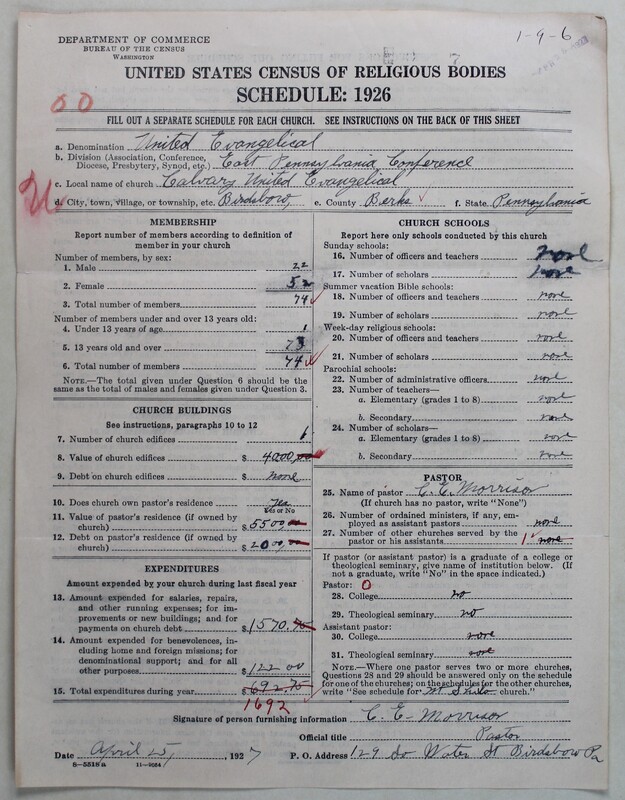 DEPARTMENT OF COMMERCE
BUREAU OF THE CENSUS
WASHINGTON
1-9-6
UNITED STATES CENSUS OF RELIGIOUS BODIES
SCHEDULE: 1926
00
FILL OUT A SEPARATE SCHEDULE FOR EACH CHURCH. SEE INSTRUCTIONS ON THE BACK OF THIS SHEET
a. Denomination United Evangelical
b. Division (Association, Conference, Diocese, Presbytery, Synod, etc.) East Pennsylvania Conference
c. Local name of church Calvary United Evangelical
d. City, town, village, or township, etc. Birdsboro, e. County Berks f. State Pennsylvania
MEMBERSHIP
Report number of members according to definition of
member in your church
Number of members, by sex:
1. Male 22
2. Female 52
3. Total number of members 74
Number of members under and over 13 years old:
4. Under 13 years of age 1
5. 13 years old and over 73
6. Total number of members 74
NOTE.—The total given under Question 6 should be the
same as the total of males and females given under Question 3.
CHURCH BUILDINGS
See instructions, paragraphs 10 to 12
7. Number of church edifices 1
8. Value of church edifices $ 4000.00
9. Debt on church edifices $ none
10. Does church own pastor's residence Yes
Yes or No
11. Value of pastor's residence (if owned by
church) $ 5500
12. Debt on pastor's residence (if owned by
church) $ 2000
EXPENDITURES
Amount expended by your church during last fiscal year
13. Amount expended for salaries, repairs,
and other running expenses; for im-
provements or new buildings; and for
payments on church debt $ 1570.75
14. Amount expended for benevolences, in-
cluding home and foreign missions; for
denominational support; and for all
other purposes $ 122 00
15. Total expenditures during year $ 1692.75
1692
CHURCH SCHOOLS
Report here only schools conducted by this church
Sunday schools:
16. Number of officers and teachers none
17. Number of scholars none
Summer vacation Bible schools:
18. Number of officers and teachers none
19. Number of scholars none
Week-day religious schools:
20. Number of officers and teachers none
21. Number of scholars none
Parochial schools:
22. Number of administrative officers none
23. Number of teachers—
a. Elementary (grades 1 to 8) none
b. Secondary none
24. Number of scholars—
a. Elementary (grades 1 to 8) none
b. Secondary none
PASTOR
25. Name of pastor C. E. Morrison
(If church has no pastor, write "None")
26. Number of ordained ministers, if any, em-
ployed as assistant pastors none
27. Number of other churches served by the
pastor or his assistants 1 none
If pastor (or assistant pastor) is a graduate of a college or
theological seminary, give name of institution below. (If
not a graduate, write "No" in the space indicated.)
Pastor: 0
28. College no
29. Theological seminary no
Assistant pastor:
30. College none
31. Theological seminary none
NOTE.—Where one pastor serves two or more churches,
Questions 28 and 29 should be answered only on the schedule
for one of the churches; on the schedules for the other churches,
write "See schedule for Mt Shilo church."
Signature of person furnishing information C. E. Morrison
Official title Pastor
Date April 25, 1927 P. O. Address 129 So Water St Birdsboro Pa
8—5518a 11—9064